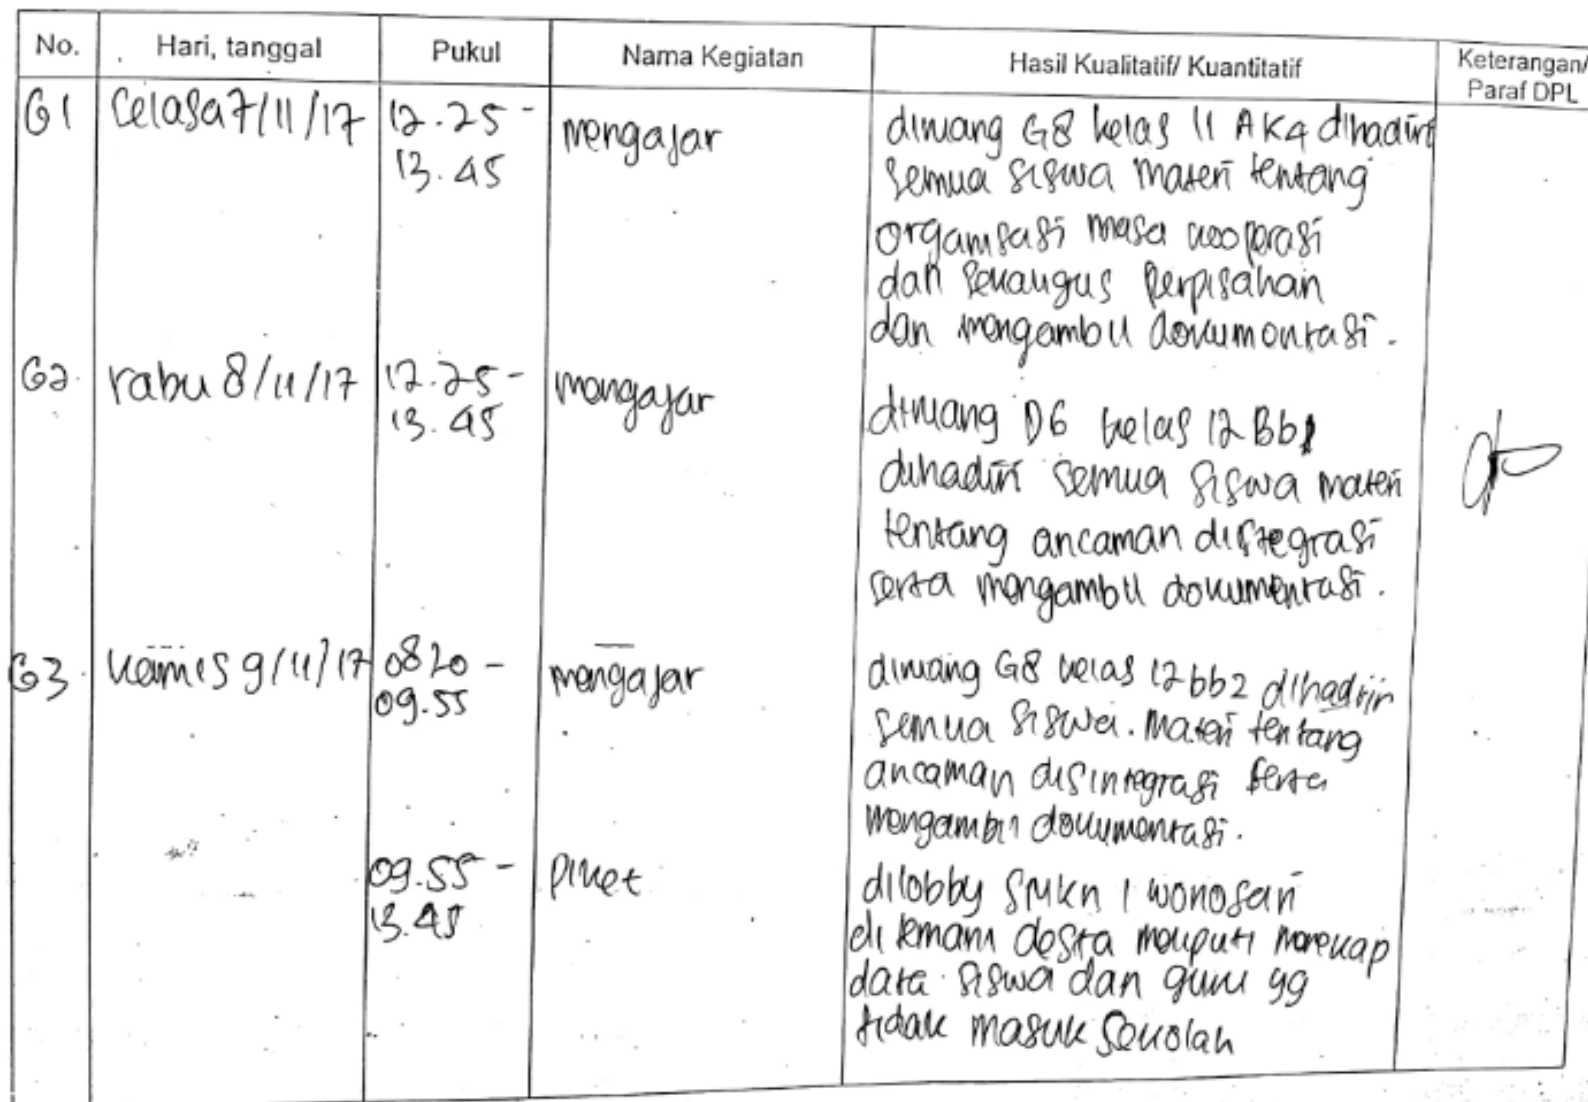 No. Hari, tanggal Pukul Nama Kegiatan Hasil Kualitatif/ Kuantitatif Keterangan/
Paraf DPL
61 Selasa 7/11/17 12.25 - mengajar diruang G8 kelas 11 AK4 dihadiri
13.45 semua siswa materi tentang
organisasi masa kooperasi
dan sekaligus perpisahan
dan mengambil dokumentasi.
62. rabu 8/11/17 12.25 - mengajar diruang D6 kelas 12 Bb1
13.45 dihadiri semua siswa materi
tentang ancaman distegrasi
serta mengambil dokumentasi.
63. kamis 9/11/17 0820 - mengajar diruang G8 kelas 12 bb2 dihadiri
09.55 semua siswa. materi tentang
ancaman disintegrasi serta
mengambil dokumentasi.
09.55 - piket dilobby SMKn 1 wonosari
13.45 di temani desta meliputi merekap
data siswa dan guru yg
tidak masuk sekolah